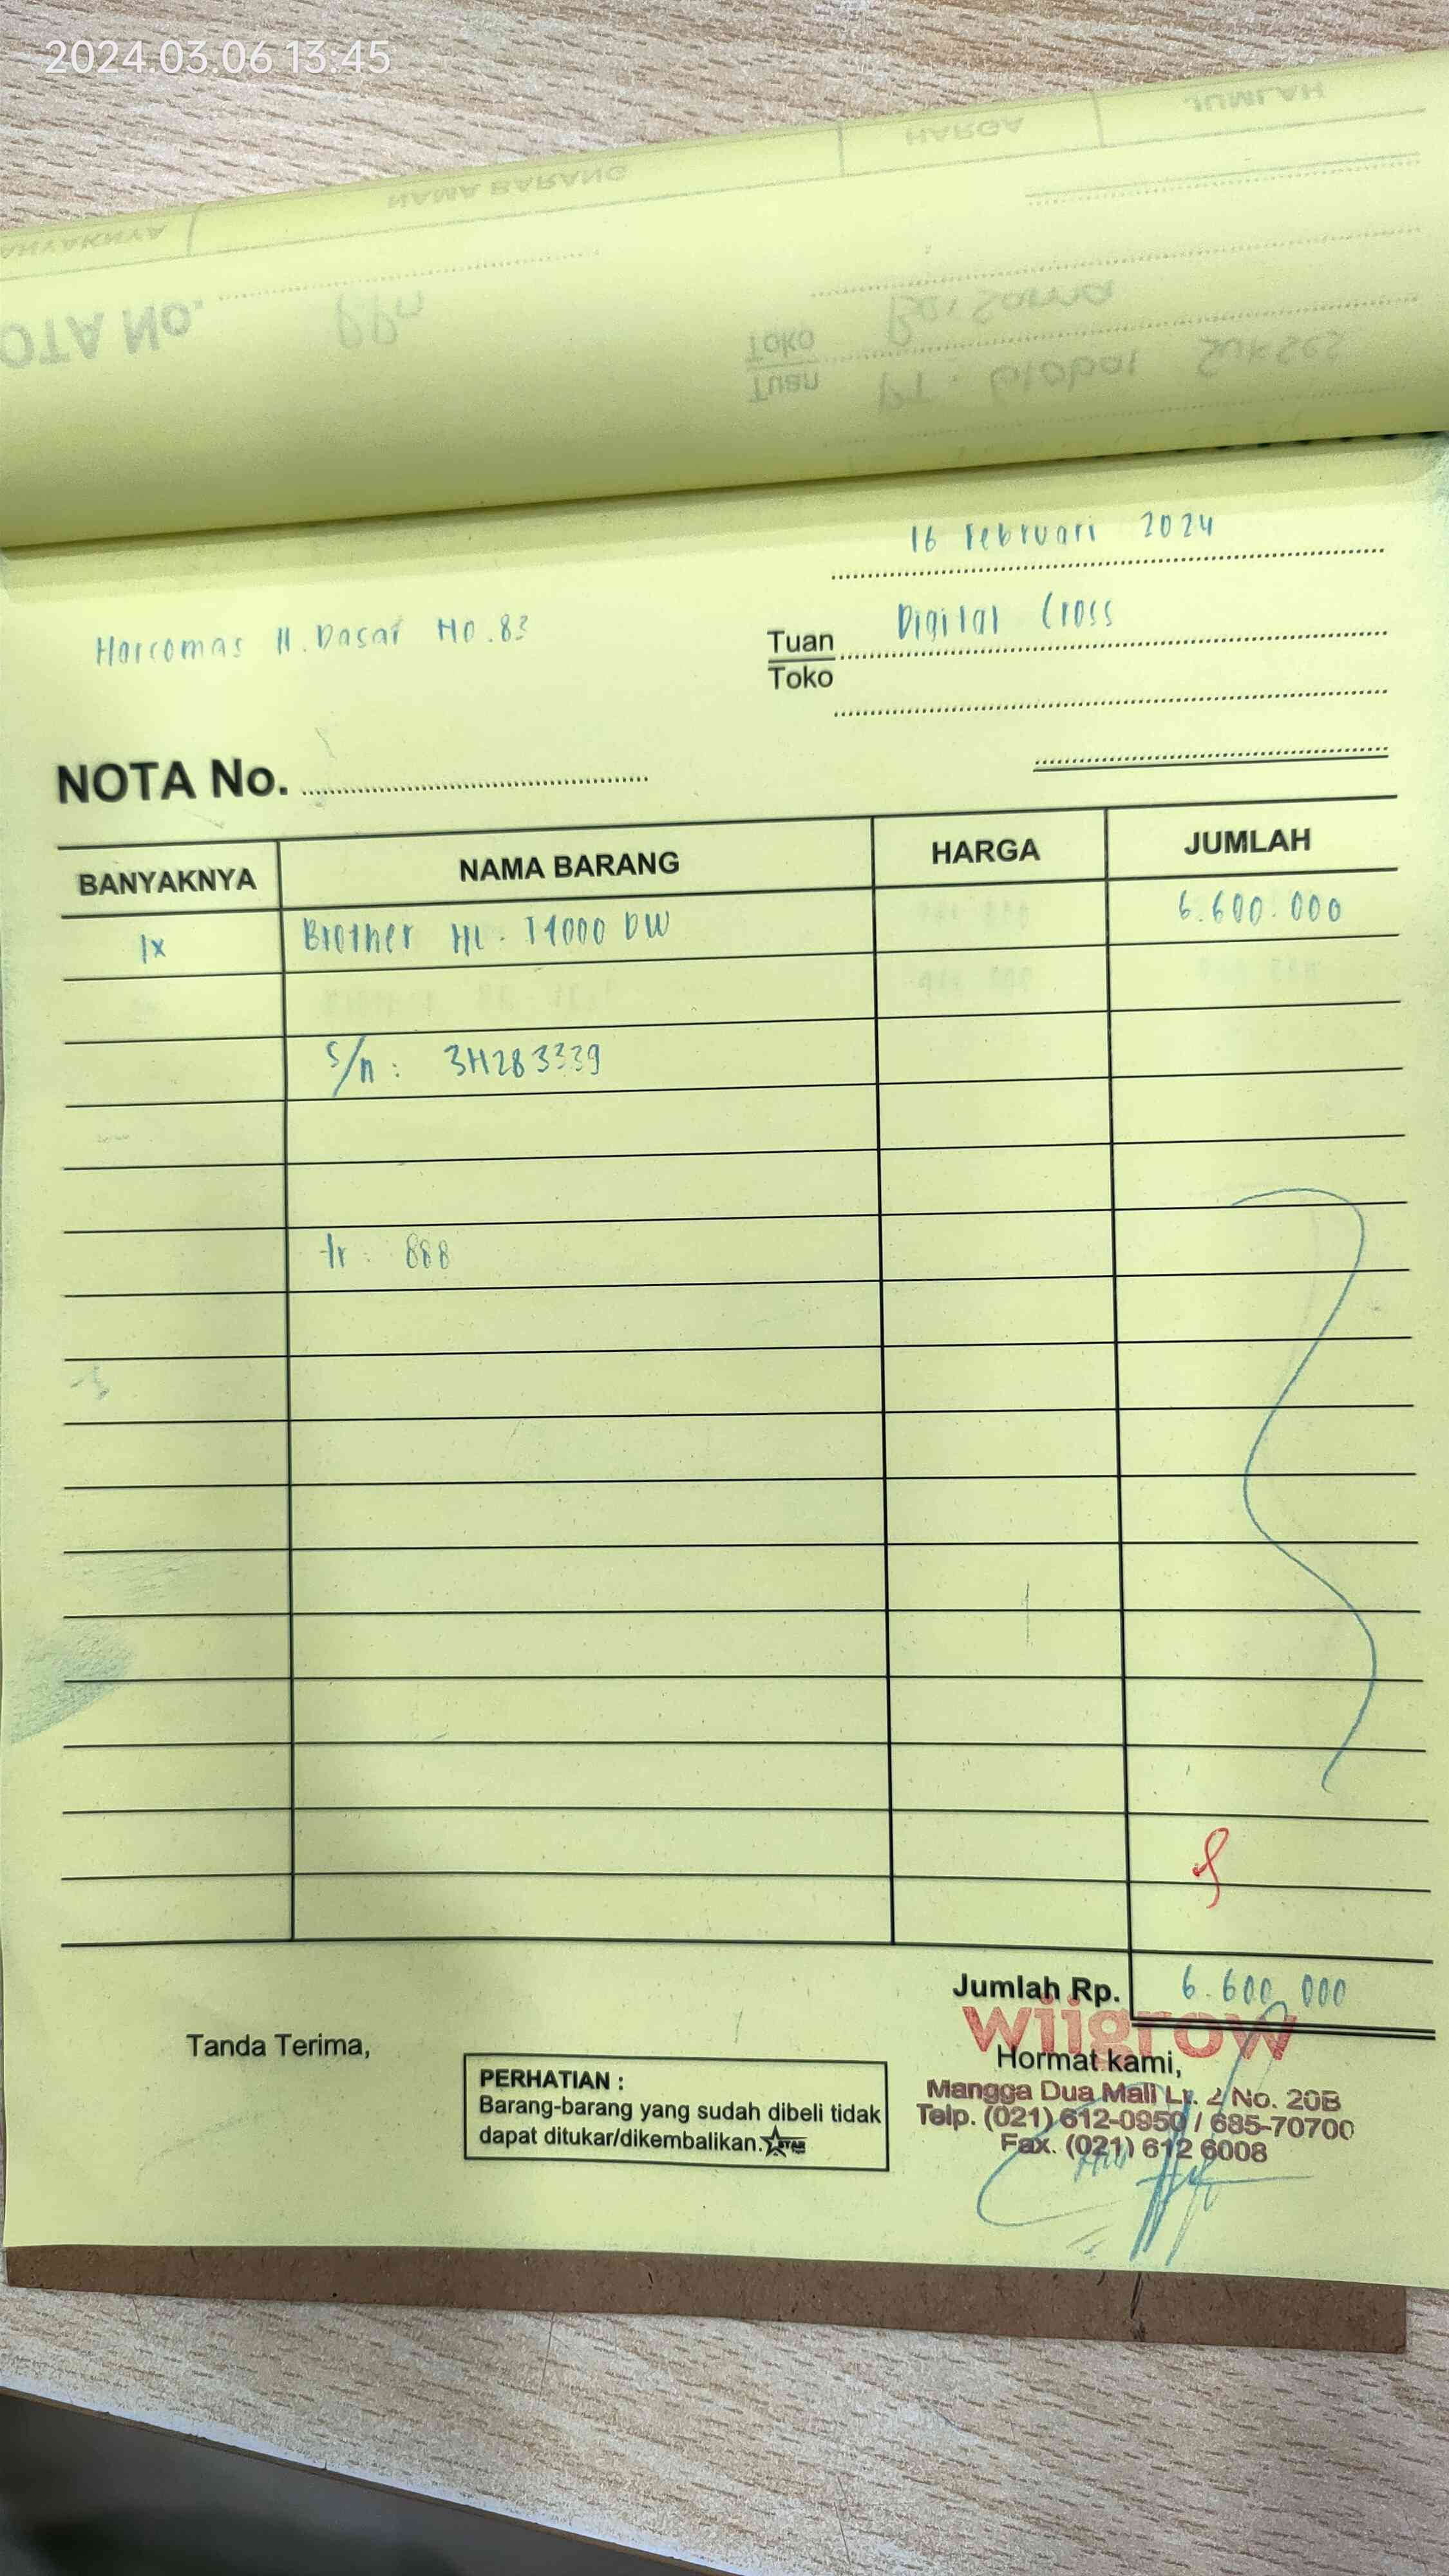 2024.03.06 13:45
JUMLAH
HARGA
NAMA BARANG
ANYAKNYA
OTA No.
PPn
Toko
Tuan
PT. Global Sukses
16 Februari 2024
Harcomas lt. Dasar No. 83
Tuan Digital Cross
Toko
NOTA No.
BANYAKNYA NAMA BARANG HARGA JUMLAH
1x Brother HL-T4000 DW 6.600.000
s/n : 3H283339
tr : 888
Jumlah Rp. 6.600.000
wiigrow
Tanda Terima,
Hormat kami,
PERHATIAN :
Barang-barang yang sudah dibeli tidak
dapat ditukar/dikembalikan.
Mangga Dua Mall Lt. 2 No. 20B
Telp. (021) 612-0950 / 685-70700
Fax. (021) 612 6008